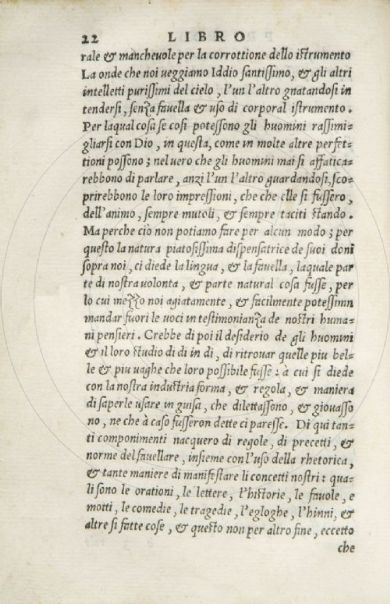 22 LIBRO
rale & mancheuole per la corrottione dello istrumento
La onde che noi veggiamo Iddio santissimo, & gli altri
intelletti purissimi del cielo, l'un l'altro gnatandosi in
tendersi, senza fauella & uso di corporal istrumento.
Per laqual cosa se cosi potessono gli huomini rassimi-
gliarsi con Dio, in questa, come in molte altre perfet-
tioni possono; nel uero che gli huomini mai si affatica-
rebbono di parlare, anzi l'un l'altro guardandosi, sco-
prirebbono le loro impressioni, che che elle si fussero,
dell'animo, sempre mutoli, & sempre taciti stando.
Ma perche cio non potiamo fare per alcun modo; per
questo la natura piatosissima dispensatrice de suoi doni
sopra noi, ci diede la lingua, & la fauella, laquale par
te di nostra uolonta, & parte natural cosa fusse, per
lo cui mezzo noi agiatamente, & facilmente potessimn
mandar fuori le uoci in testimonianza de nostri huma-
ni pensieri. Crebbe di poi il desiderio de gli huomini
& il loro studio di di in di, di ritrouar quelle piu bel-
le & piu uaghe che loro possibile fusse: à cui si diede
con la nostra industria forma, & regola, & maniera
di saperle usare in guisa, che dilettassono, & giouasso
no, ne che à caso fusseron dette ci paresse. Di qui tan-
ti componimenti nacquero di regole, di precetti, &
norme del fauellare, insieme con l'uso della rhetorica,
& tante maniere di manifestare li concetti nostri: qua-
li sono le orationi, le lettere, l'historie, le fauole, e
motti, le comedie, le tragedie, l'egloghe, l'hinni, &
altre si fatte cose, & questo non per altro fine, eccetto
che